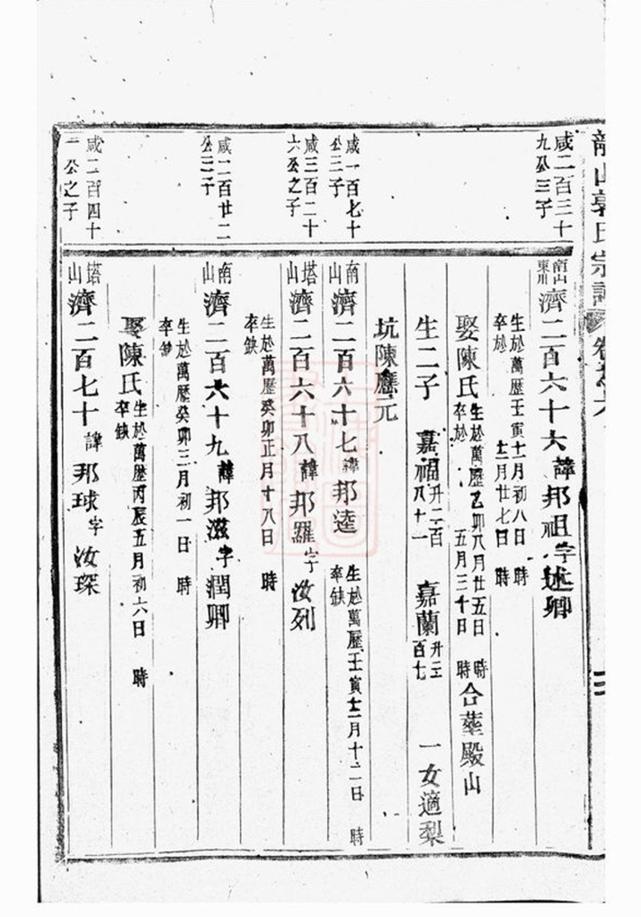 龍山郭氏宗譜 卷之六
咸二百三十
九公三子
南山
東川
濟二百六十六 諱邦祖 字述卿
生於萬歷壬寅十一月初八日 時
卒於 十二月廿七日 時
娶陳氏 生於萬歷乙卯八月廿五日 時
卒於 五月三十日 時 合塟殿山
生二子 嘉福 升二百八十一 嘉蘭 升三百七 一女適梨
坑陳應元
咸一百七十
公三子
南山 濟二百六十七 諱邦逵 生於萬歷壬寅十二月十二日 時
卒缺
咸三百二十
六公之子
塔山 濟二百六十八 諱邦羅 字汝列
生於萬歷癸卯正月十八日 時
卒缺
咸二百廿二
公三子
南山 濟二百六十九 諱邦滋 字潤卿
生於萬歷癸卯三月初一日 時
卒缺
娶陳氏 生於萬歷丙辰五月初六日 時
卒缺
咸二百四十
一公之子
塔山 濟二百七十 諱邦球 字汝琛